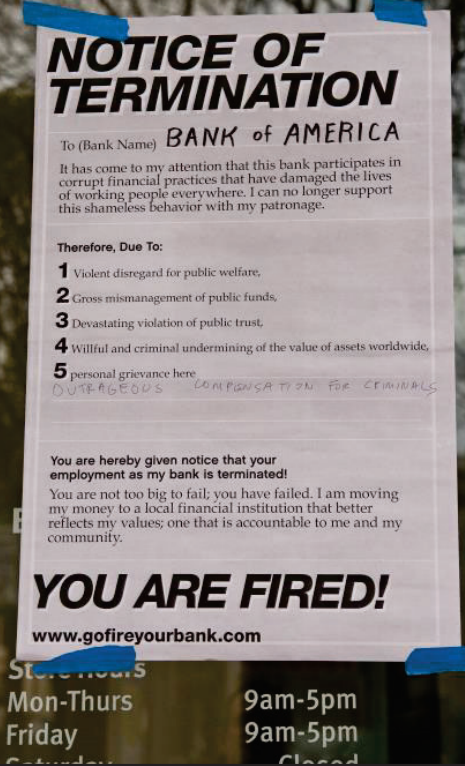 NOTICE OF
TERMINATION
To (Bank Name) BANK of AMERICA
It has come to my attention that this bank participates in
corrupt financial practices that have damaged the lives
of working people everywhere. I can no longer support
this shameless behavior with my patronage.
Therefore, Due To:
1 Violent disregard for public welfare,
2 Gross mismanagement of public funds,
3 Devastating violation of public trust,
4 Willful and criminal undermining of the value of assets worldwide,
5 personal grievance here
OUTRAGEOUS COMPENSATION FOR CRIMINALS
You are hereby given notice that your
employment as my bank is terminated!
You are not too big to fail; you have failed. I am moving
my money to a local financial institution that better
reflects my values; one that is accountable to me and my
community.
YOU ARE FIRED!
www.gofireyourbank.com
Store Hours
Mon-Thurs 9am-5pm
Friday 9am-5pm
Saturday Closed